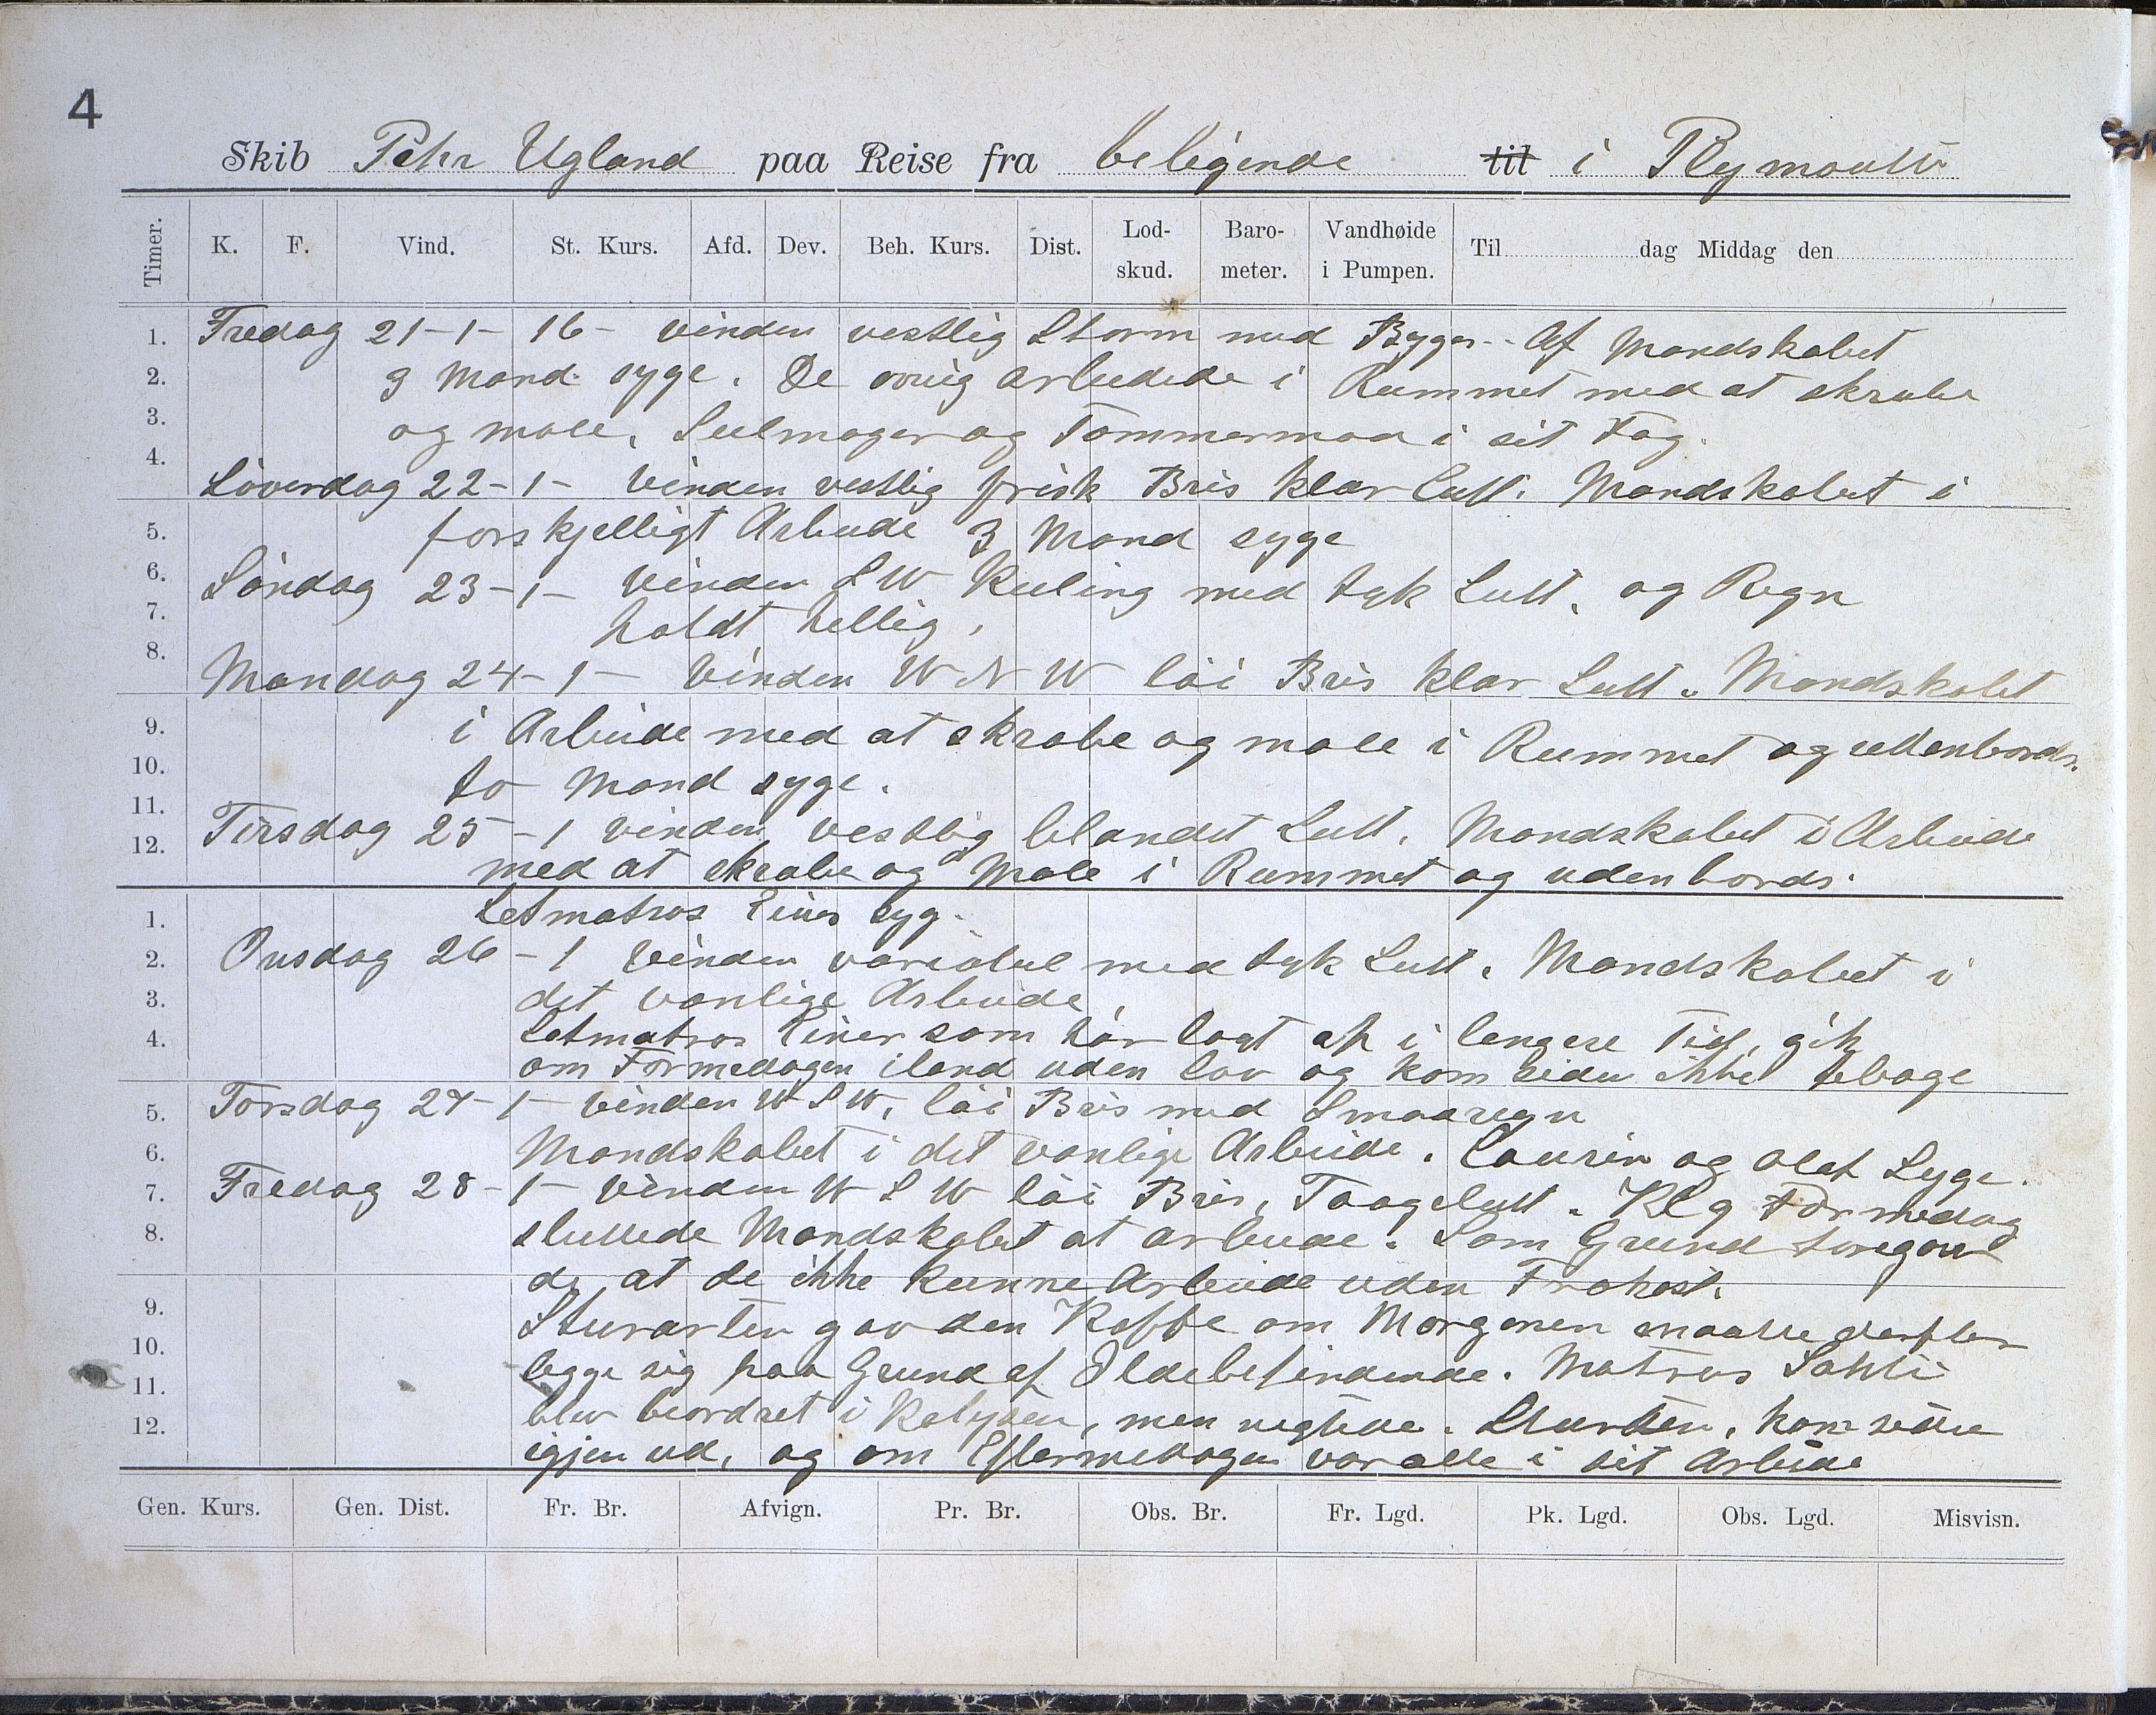 4
Skib Pehr Ugland paa Reise fra beligende til i Plymouth
Timer. K. F. Vind. St. Kurs. Afd. Dev. Beh. Kurs. Dist. Lod-skud. Baro-meter. Vandhøide i Pumpen. Til dag Middag den
1. Fredag 21-1-16- vinden vestlig Storm med Byger. Af Mandskabet
2. 3 Mand syge. De øvrig arbeidede i Rummet med at skrabe
3. og male, Seilmager og Tømmermand i sit Fag.
4. Löverdag 22-1- Vinden vestlig frisk Bris klar Luft. Mandskabet i
5. forskjelligt Arbeide 3 Mand syge
6. Söndag 23-1- Vinden SW Kuling med tyk Luft, og Regn
7. holdt hellig,
8. Mandag 24-1- Vinden WNW löi Bris klar Luft. Mandskabet
9. i Arbeide med at skrabe og male i Rummet og udenbords.
10. to Mand syge.
11. Tirsdag 25-1 vinden vestlig blandet Luft, Mandskabet i Arbeide
12. med at skrabe og Male i Rummet og udenbords.
1. Letmatros Einer syg.
2. Onsdag 26-1 Vinden variabel med tyk Luft, Mandskabet i
3. det vanlige Arbeide,
4. Letmatros Einer som har lagt af i lengere Tid, gik
om Formedagen iland uden lov og kom siden ikke tilbage
5. Torsdag 27-1- Vinden WSW, löi Bris med Smaaregn
6. Mandskabet i det vanlige Arbeide. Laurin og Olaf Syge.
7. Fredag 28-1- Vinden WSW löi Bris, Taageluft. Kl 9 Formedag
8. sluttede Mandskabet at arbeide. Som Grund foregav
de at de ikke kunne Arbeide uden Frokost.
9. Stuarten gav den Kaffe om Morgenen maatte derfter
10. legge sig paa Grund af Ildebefindende. Matros Sahli
11. blev beordret i Kabysen, men negtede. Stuarten, kom sidre
12. igjen ud, og om Eftermedagen var alle i sit Arbeide
Gen. Kurs. Gen. Dist. Fr. Br. Afvign. Pr. Br. Obs. Br. Fr. Lgd. Pk. Lgd. Obs. Lgd. Misvisn.